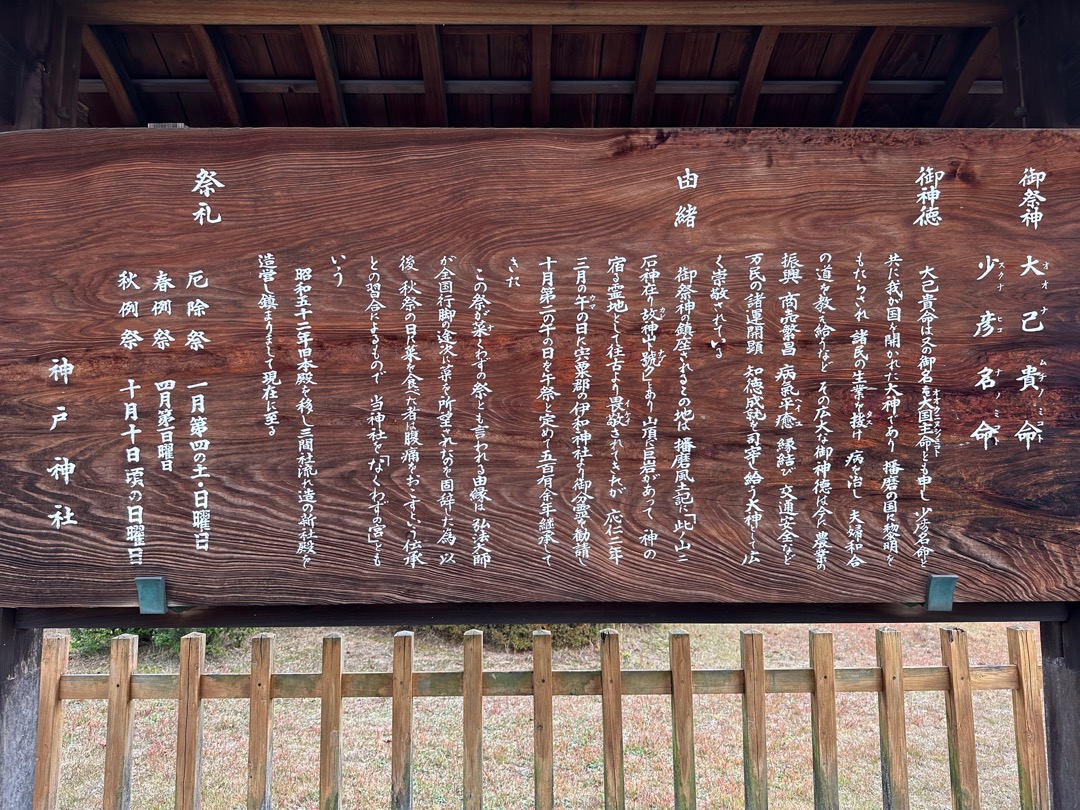 御祭神
大己貴命
オオ ナ ムチノミコト
少彦名命
スクナ ヒコ ナノミコト
御神徳
大己貴命は又の御名を大国主命とも申し 少彦名命と
オオクニヌシノミコト
共に我が国を開かれた大神であり 播磨の国に黎明を
もたらされ 諸民の生業を授け 病を治し 夫婦和合
の道を教え給うなど その広大な御神徳は今に農業の
振興 商売繁昌 病氣平癒 縁結び 交通安全など
万民の諸運開顕 知徳成就を司宰し給う大神として広
く崇敬されている
由緒
御祭神の鎮座されるこの地は 播磨風土記に「此ノ山ニ
石神在リ故神山ト號ク」とあり山頂に巨岩があって 神の
宿る霊地として往古より畏敬されてきたが 応仁三年
三月の午の日に宍粟郡の伊和神社より御分霊を勧請し
ウマ
十月第二の午の日を午祭と定め 五百有余年継承して
きた
この祭が菜くわずの祭とも言われる由縁は 弘法大師
ナ
が全国行脚の途次に菜を所望されたのを固辞した為 以
後 秋祭の日に菜を食べた者は腹痛をおこすという伝承
との習合によるもので 当神社を「なくわずの宮」とも
いう
昭和五十二年旧本殿を移し 三間社流れ造の新社殿を
造営し鎮まりまして現在に至る
祭礼
厄除祭 一月第四の土・日曜日
春例祭 四月第一日曜日
秋例祭 十月十日頃の日曜日
神戸神社